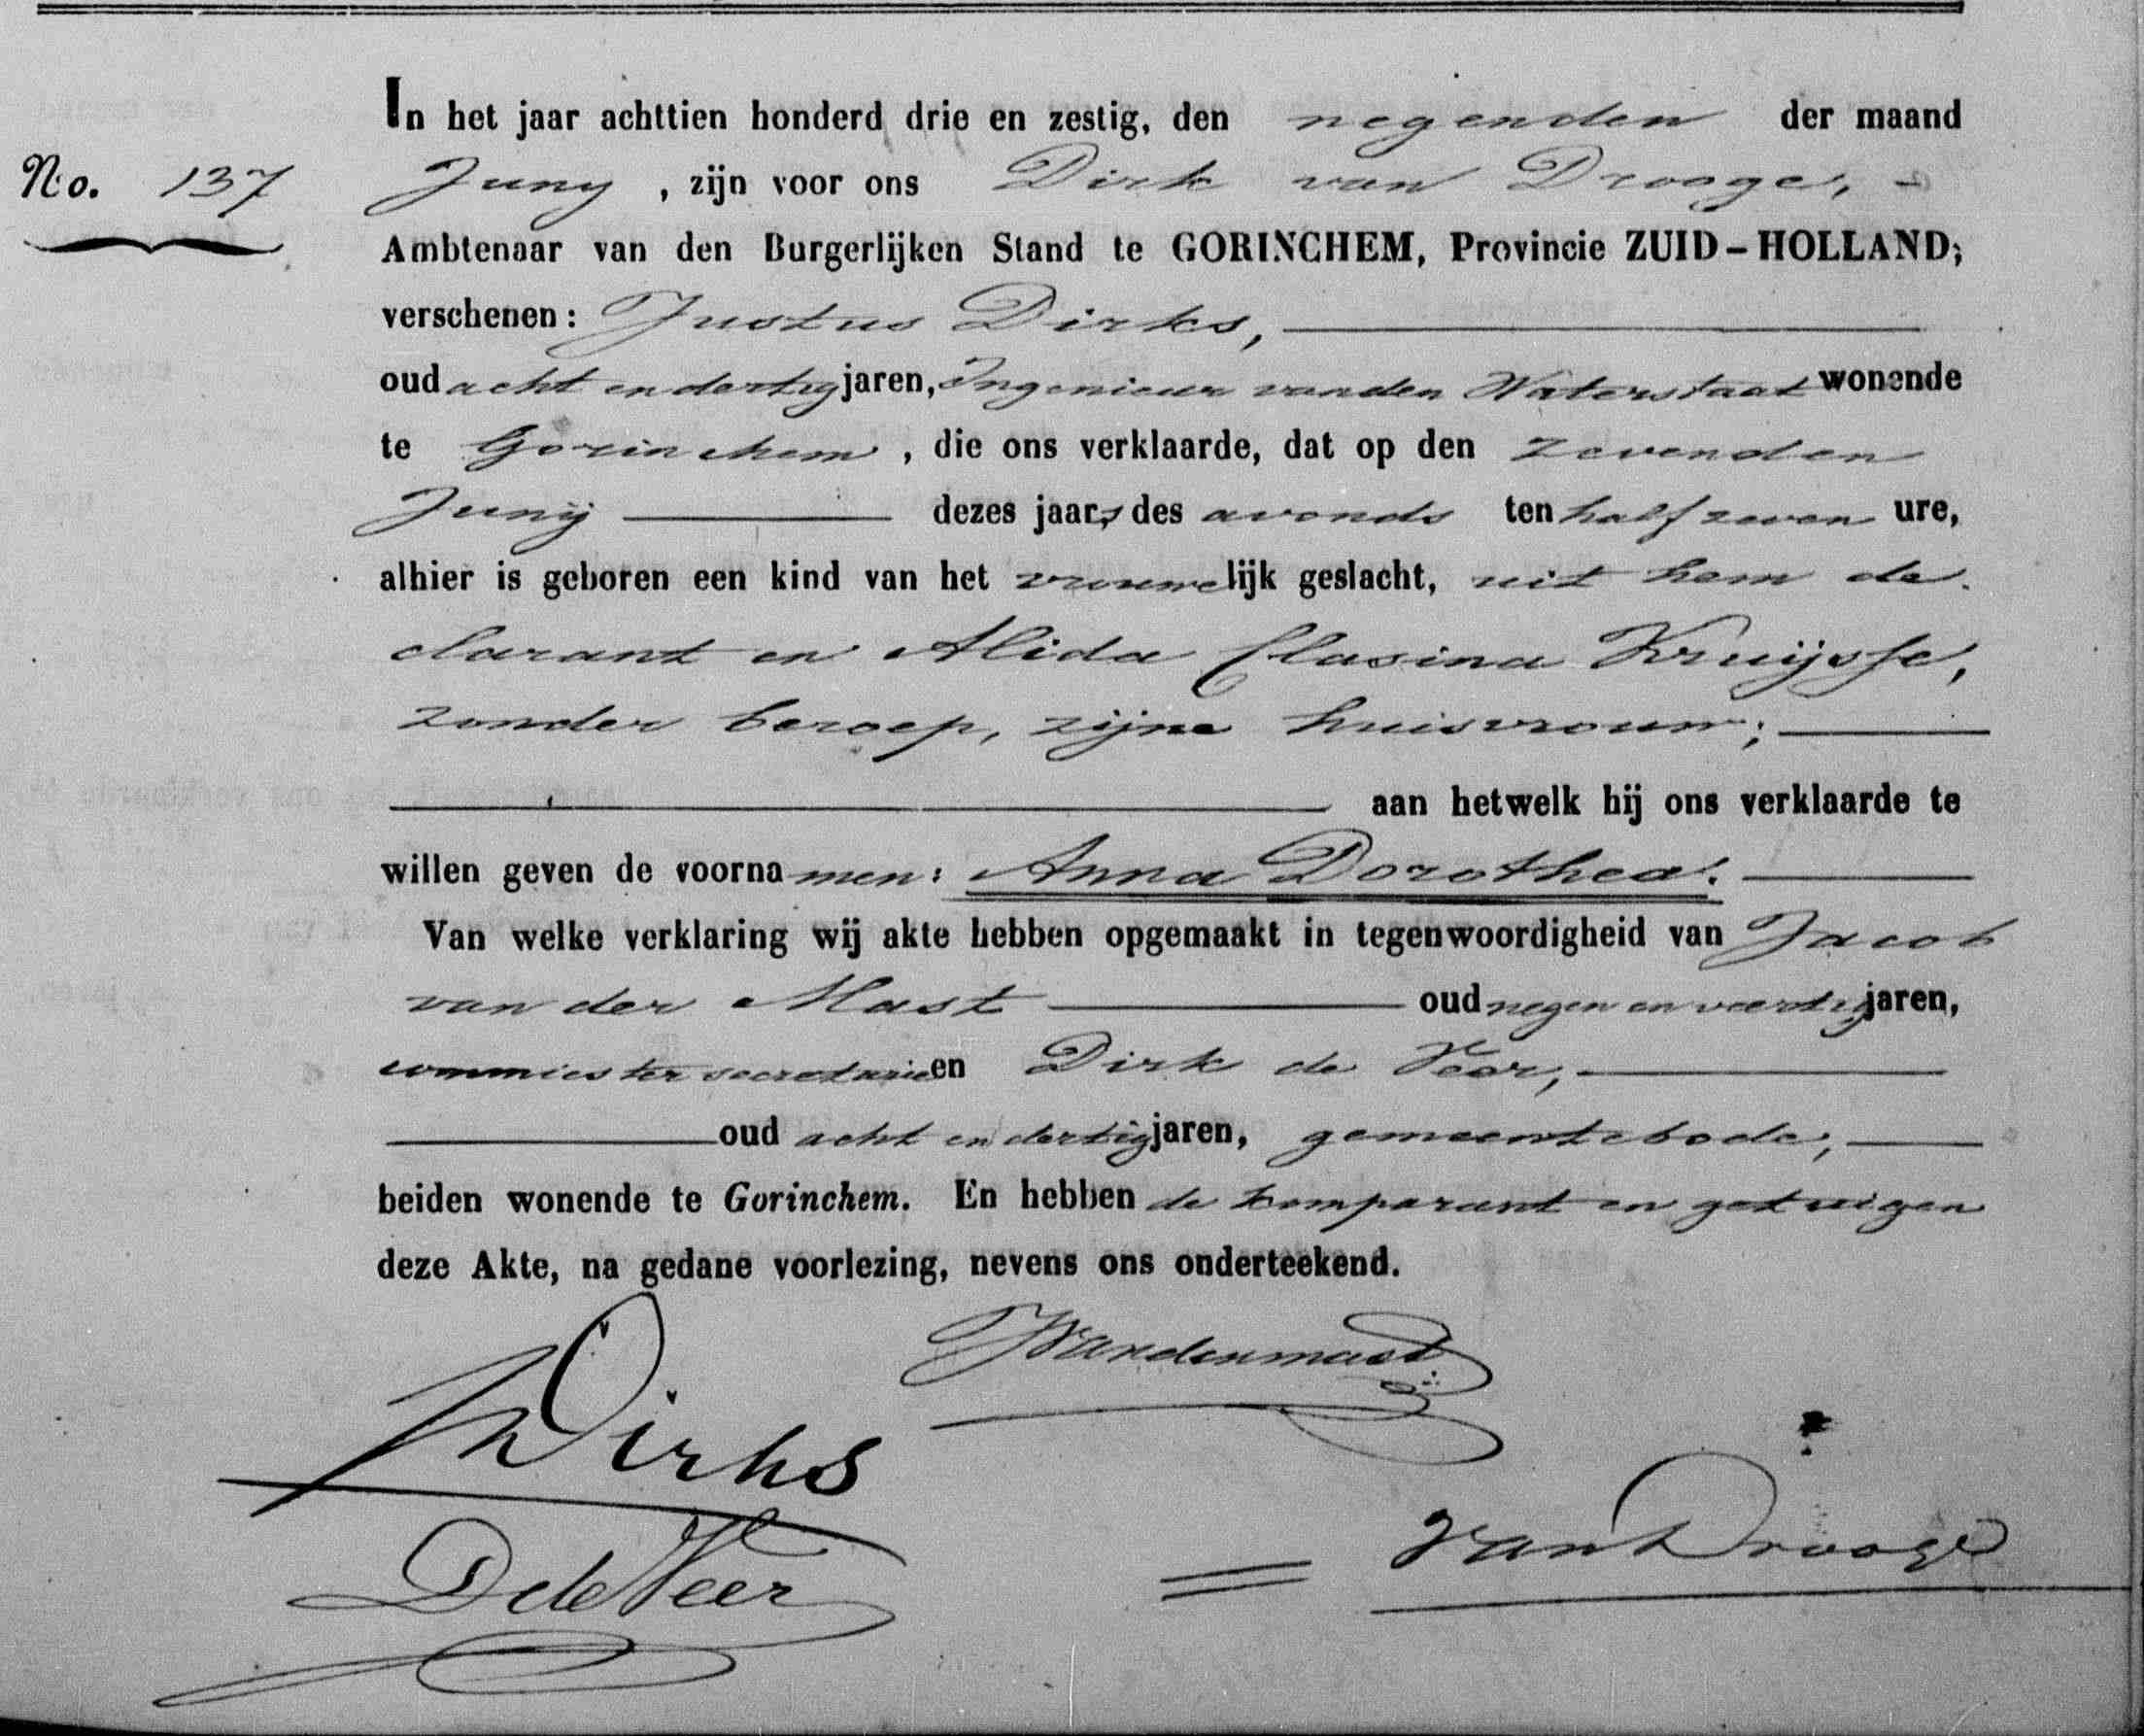 In het jaar achttien honderd drie en zestig, den negenden der maand
No. 137 Juny, zijn voor ons Dirk van Drooge, -
Ambtenaar van den Burgerlijken Stand te GORINCHEM, Provincie ZUID-HOLLAND;
verschenen: Justus Dirks,
oud acht en dertig jaren, Ingenieur van den Waterstaat wonende
te Gorinchem, die ons verklaarde, dat op den zevenden
Junij dezes jaars, des avonds ten half zeven ure,
alhier is geboren een kind van het vrouwelijk geslacht, uit hem de-
clarant en Alida Clasina Kruijsse,
zonder beroep, zijne huisvrouw;
aan hetwelk hij ons verklaarde te
willen geven de voornamen: Anna Dorothea.
Van welke verklaring wij akte hebben opgemaakt in tegenwoordigheid van Jacob
van der Mast oud negen en veertig jaren,
commies ter secretarie en Dirk de Veer,
oud acht en dertig jaren, gemeentebode,
beiden wonende te Gorinchem. En hebben de komparant en getuigen
deze Akte, na gedane voorlezing, nevens ons onderteekend.
JVandermast
Dirks
van Drooge
D de Veer